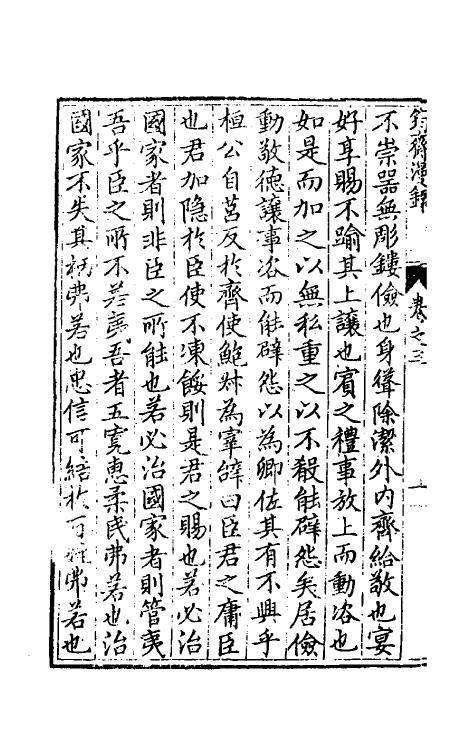 能改齋漫錄 卷之三
不崇器無彫鏤儉也身聳除潔外內齊給敬也宴
好享賜不踰其上讓也賓之禮事放上而動咨也
如是而加之以無私重之以不殽能辟怨矣居儉
動敬德讓事咨而能辟怨以為卿佐其有不興乎
桓公自莒反於齊使鮑叔為宰辭曰臣君之庸臣
也君加隐於臣使不凍餒則是君之賜也若必治
國家者則非臣之所能也若必治國家者則管夷
吾乎臣之所不若夷吾者五寛惠柔民弗若也治
國家不失其柄弗若也忠信可結於百姓弗若也